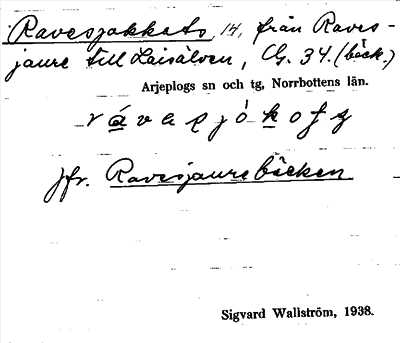 Ravesjokkats 14, från Raves-
jaure till Laisälven, G. 34. (bäck.)
Arjeplogs sn och tg, Norrbottens län.
Jfr. Ravesjaurebäcken
Sigvard Wallström, 1938.